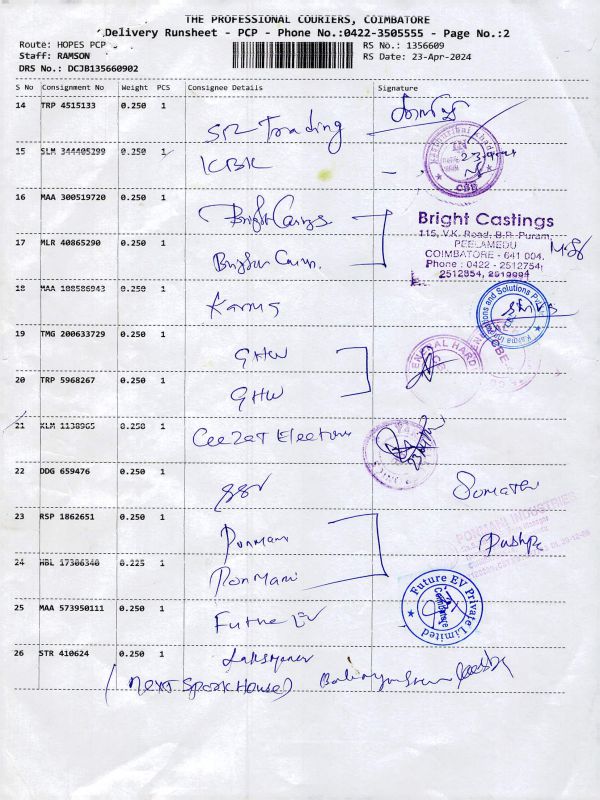 THE PROFESSIONAL COURIERS, COIMBATORE
Delivery Runsheet - PCP - Phone No.:0422-3505555 - Page No.:2
Route: HOPES PCP
RS No.: 1356609
Staff: RAMSON
RS Date: 23-Apr-2024
DRS No.: DCJB135660902
S No Consignment No Weight PCS Consignee Details Signature
14 TRP 4515133 0.250 1 SR Trading
15 SLM 344405299 0.250 1 KBK
16 MAA 300519720 0.250 1 Bright Casings
17 MLR 40865290 0.250 1
Bright Castings
115, V.K. Road, B.R. Puram,
PEELAMEDU
COIMBATORE - 641 004.
Phone : 0422 - 2512754,
2512854, 2619994
18 MAA 108586943 0.250 1
19 TMG 200633729 0.250 1 GHW
20 TRP 5968267 0.250 1 GHW
21 KLM 1138965 0.250 1
22 DDG 659476 0.250 1
23 RSP 1862651 0.250 1 Ponmani
PONMANI INDUSTRIES
24 HBL 17306340 0.225 1 Ponmani
25 MAA 573950111 0.250 1 Future EV
Future EV Private Limited
Coimbatore
26 STR 410624 0.250 1
(Next Spark House)